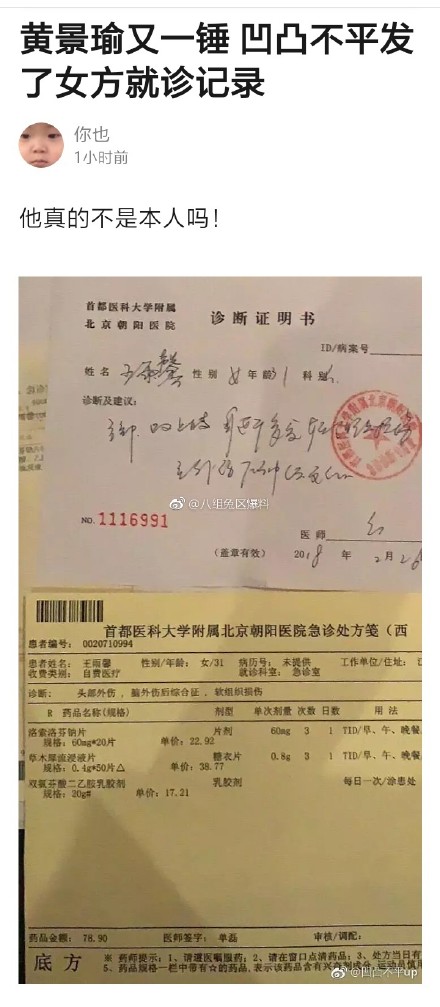 黄景瑜又一锤 凹凸不平发
了女方就诊记录
你也
1小时前
他真的不是本人吗！
首都医科大学附属
北京朝阳医院
诊断证明书
ID/病案号
姓名
性别 女 年龄 31 科别
诊断及建议：
@八组兔区爆料
NO. 1116991
医师
（盖章有效）
2018 年 2月26
首都医科大学附属北京朝阳医院急诊处方笺（西
患者编号： 0020710994
患者姓名： 王雨馨 性别/年龄： 女/31 病历号： 未提供 工作单位/住址：
收费类别： 自费医疗 就诊科室： 急诊室
诊断： 头部外伤，脑外伤后综合征，软组织损伤
R 药品名称(规格) 剂型 单次剂量 次数 日数 用 法
洛索洛芬钠片 片剂 60mg 3 1 TID/早、午、晚餐
规格：60mg*20片 单价：22.92
草木犀流浸液片 糖衣片 0.8g 3 1 TID/早、午、晚餐
规格：0.4g*50片△ 单价：38.77
双氯芬酸二乙胺乳胶剂 乳胶剂 每日一次/涂患处
规格：20g# 单价：17.21
药品金额： 78.90 医师签字： 单磊 审核/调配：
底方
※ 药师提示：1、请遵医嘱服药；2、请在窗口点清药品；3、处方当日有
5、药品规格一栏中带有☆的药品，表示该药品含有兴奋剂成分，运动员慎用
@凹凸不平up